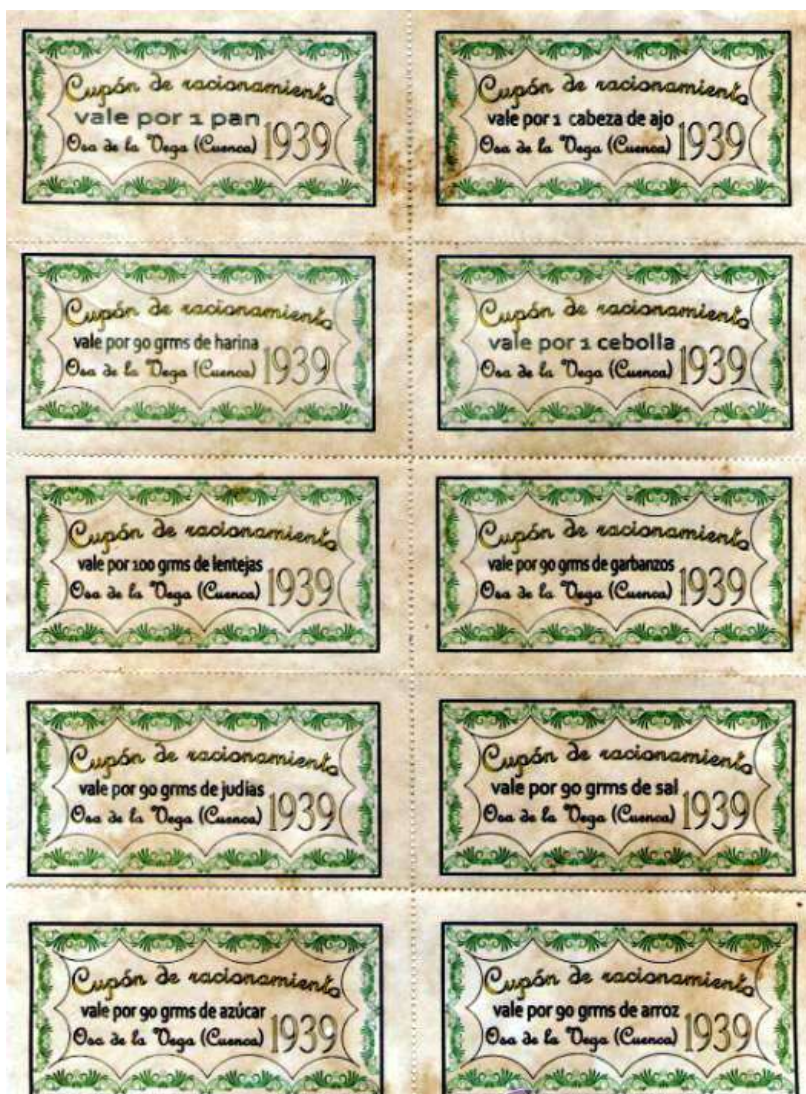 Cupón de racionamiento
vale por 1 pan
Osa de la Vega (Cuenca) 1939
Cupón de racionamiento
vale por 1 cabeza de ajo
Osa de la Vega (Cuenca) 1939
Cupón de racionamiento
vale por 90 grms de harina
Osa de la Vega (Cuenca) 1939
Cupón de racionamiento
vale por 1 cebolla
Osa de la Vega (Cuenca) 1939
Cupón de racionamiento
vale por 100 grms de lentejas
Osa de la Vega (Cuenca) 1939
Cupón de racionamiento
vale por 90 grms de garbanzos
Osa de la Vega (Cuenca) 1939
Cupón de racionamiento
vale por 90 grms de judías
Osa de la Vega (Cuenca) 1939
Cupón de racionamiento
vale por 90 grms de sal
Osa de la Vega (Cuenca) 1939
Cupón de racionamiento
vale por 90 grms de azúcar
Osa de la Vega (Cuenca) 1939
Cupón de racionamiento
vale por 90 grms de arroz
Osa de la Vega (Cuenca) 1939